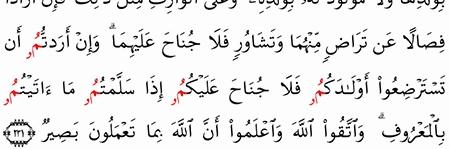 بِوَلَدِهَا وَلَا مَوْلُودٌ لَّهُۥ بِوَلَدِهِۦ ۚ وَعَلَى ٱلْوَارِثِ مِثْلُ ذَٰلِكَ ۗ فَإِنْ أَرَادَا
فِصَالًا عَن تَرَاضٍ مِّنْهُمَا وَتَشَاوُرٍ فَلَا جُنَاحَ عَلَيْهِمَا ۗ وَإِنْ أَرَدتُّمُۥ أَن
تَسْتَرْضِعُوٓا۟ أَوْلَٰدَكُمُۥ فَلَا جُنَاحَ عَلَيْكُمُۥ إِذَا سَلَّمْتُمُۥ مَا أَتَيْتُمُۥ
بِٱلْمَعْرُوفِ ۗ وَٱتَّقُوا۟ ٱللَّهَ وَٱعْلَمُوٓا۟ أَنَّ ٱللَّهَ بِمَا تَعْمَلُونَ بَصِيرٌ ٢٣١